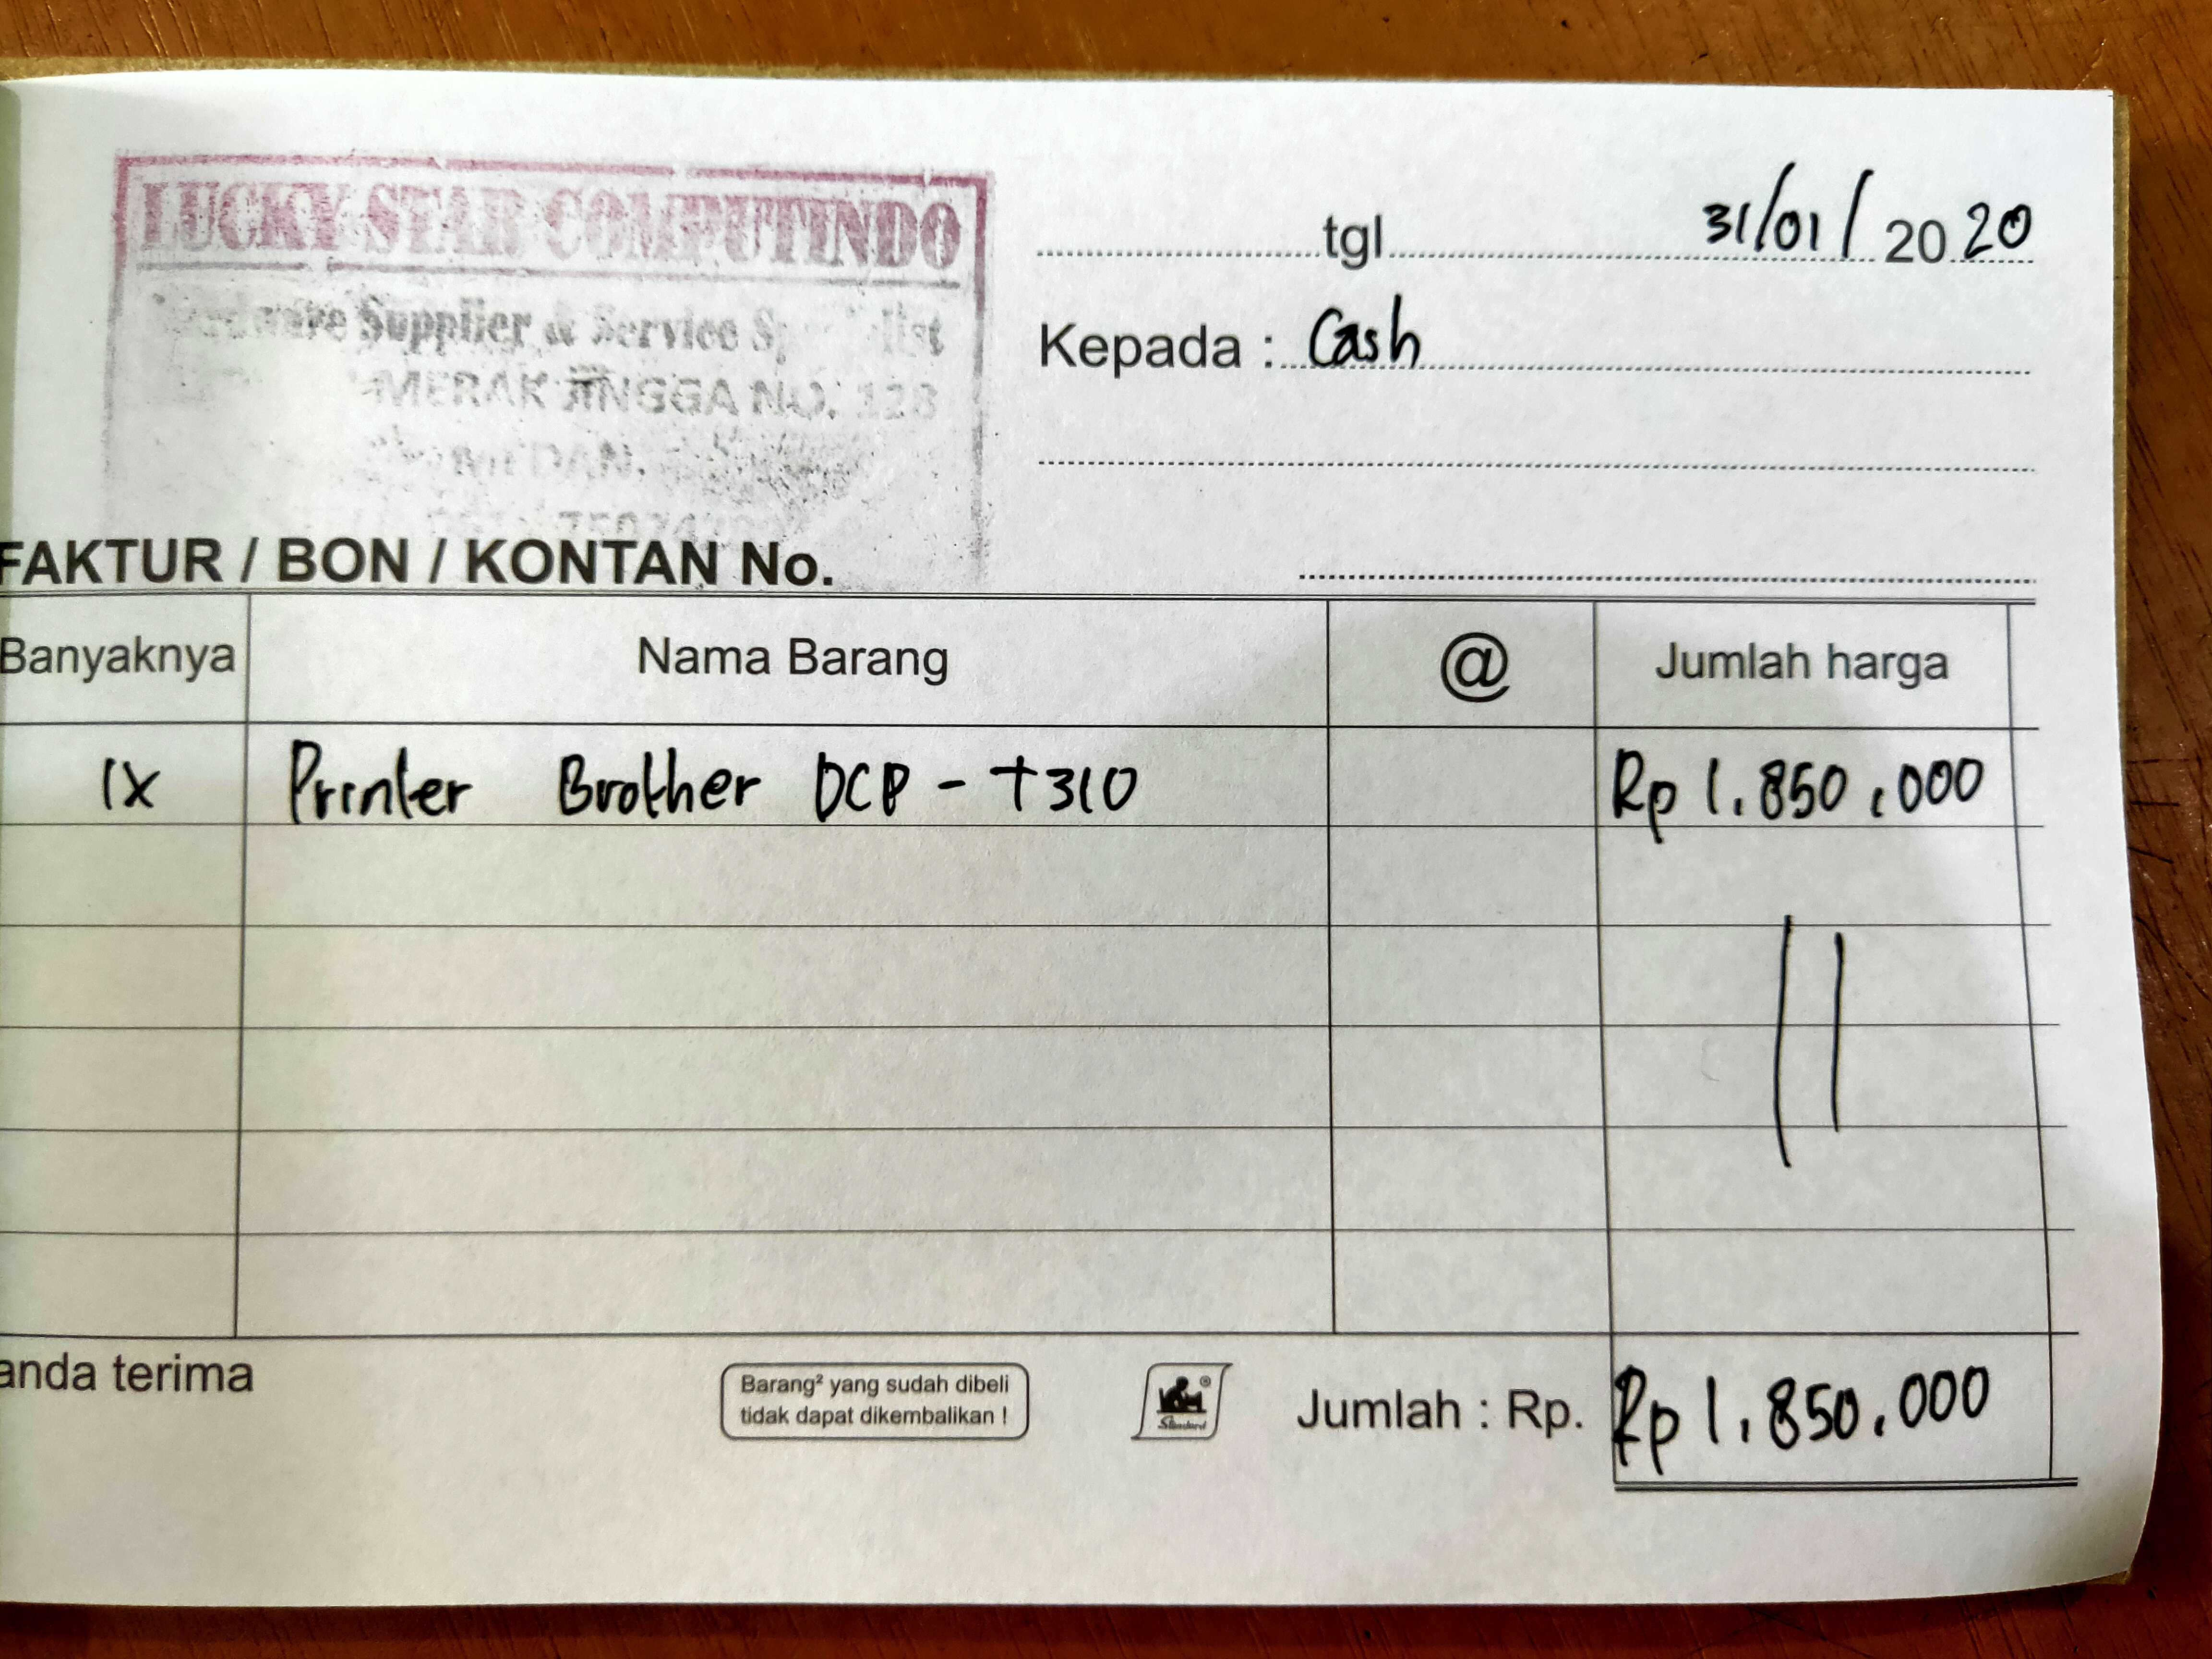 LUCKY STAR COMPUTINDO
Supplier & Service
MERAK JINGGA NO. 128
MEDAN.
tgl 31/01/2020
Kepada : Cash
FAKTUR / BON / KONTAN No.
Banyaknya Nama Barang @ Jumlah harga
1X Printer Brother DCP - T310 Rp 1.850.000
anda terima
Barang² yang sudah dibeli
tidak dapat dikembalikan !
Standard
Jumlah : Rp. Rp 1.850.000